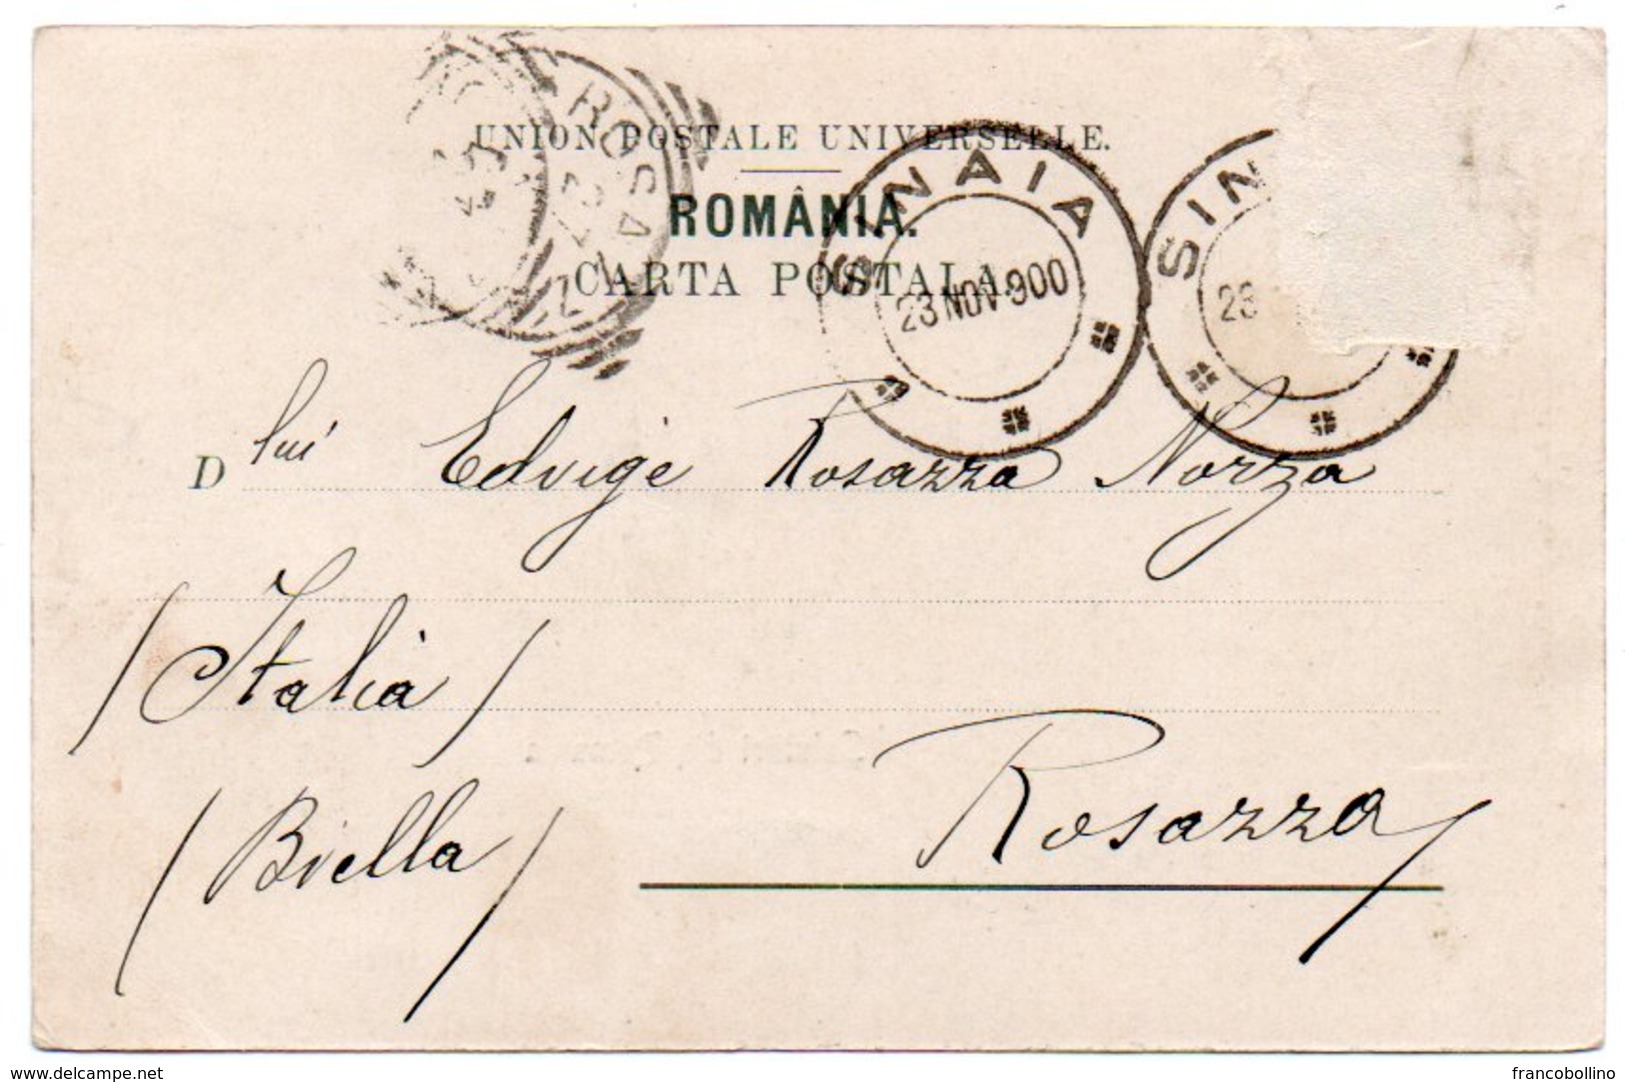 UNION POSTALE UNIVERSELLE.
ROMÂNIA.
CARTA POSTALA.
ROSAZZA
SINAIA
23 NOV. 900
SIN
23
Dlui Edvige Rosazza Norza
(Italia)
(Biella)
Rosazza
www.delcampe.net
francobollino